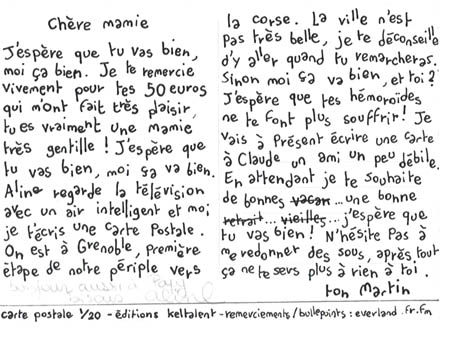 Chère mamie
J'espère que tu vas bien,
moi ça bien. Je te remercie
vivement pour tes 50 euros
qui m'ont fait très plaisir,
tu es vraiment une mamie
très gentille ! J'espère que
tu vas bien, moi ça va bien.
Aline regarde la télévision
avec un air intelligent et moi
je t'écris une carte Postale.
On est à Grenoble, première
étape de notre périple vers
la corse. La ville n'est
pas très belle, je te déconseille
d'y aller quand tu remarcheras.
Sinon moi ça va bien, et toi ?
J'espère que tes hémoroïdes
ne te font plus souffrir ! Je
vais à Présent écrire une carte
à Claude un ami un peu débile.
En attendant je te souhaite
de bonnes vacan... une bonne
retrait... vieilles... j'espère que
tu vas bien ! N'hésite Pas à
me redonner des sous, après tout
ça ne te sers plus à rien à toi.
ton Martin
carte postale 1/20 - éditions keltalent - remerciements / bullepoints : everland.fr.fm